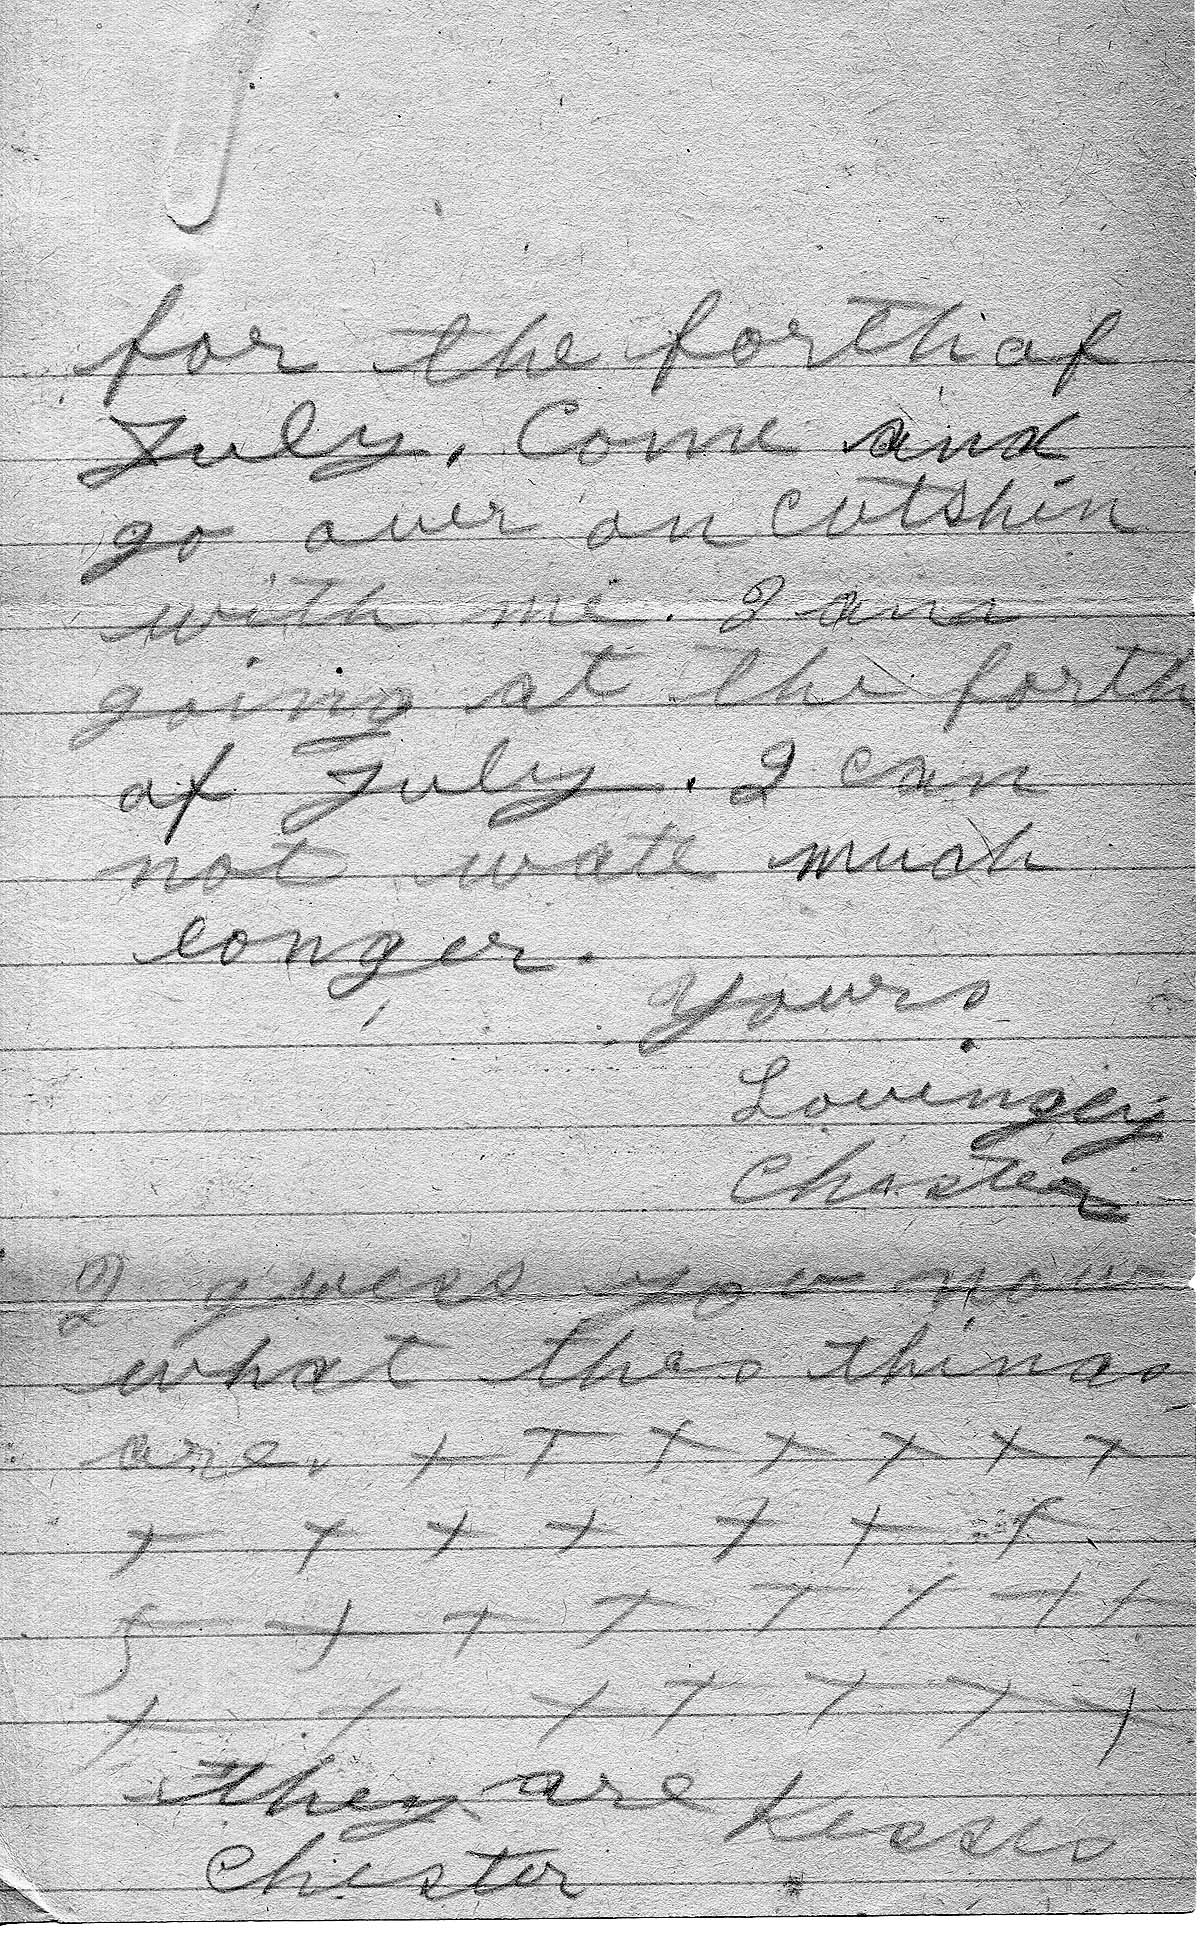 for the forth of
July. Come and
go over on cutshin
with me. I am
going at the forth
of July. I can
not wate much
longer.
Yours
Lovingly
Chaster
I guess you now
what thes things
are. + + + + + + +
+ + + + + + +
+ + + + + + + +
+ + + + + + +
they are kesses
Chester